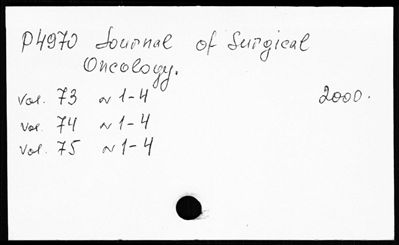 P4970 Journal of Surgical
Oncology.
Vol. 73 N 1-4 2000.
Vol. 74 N 1-4
Vol. 75 N 1-4